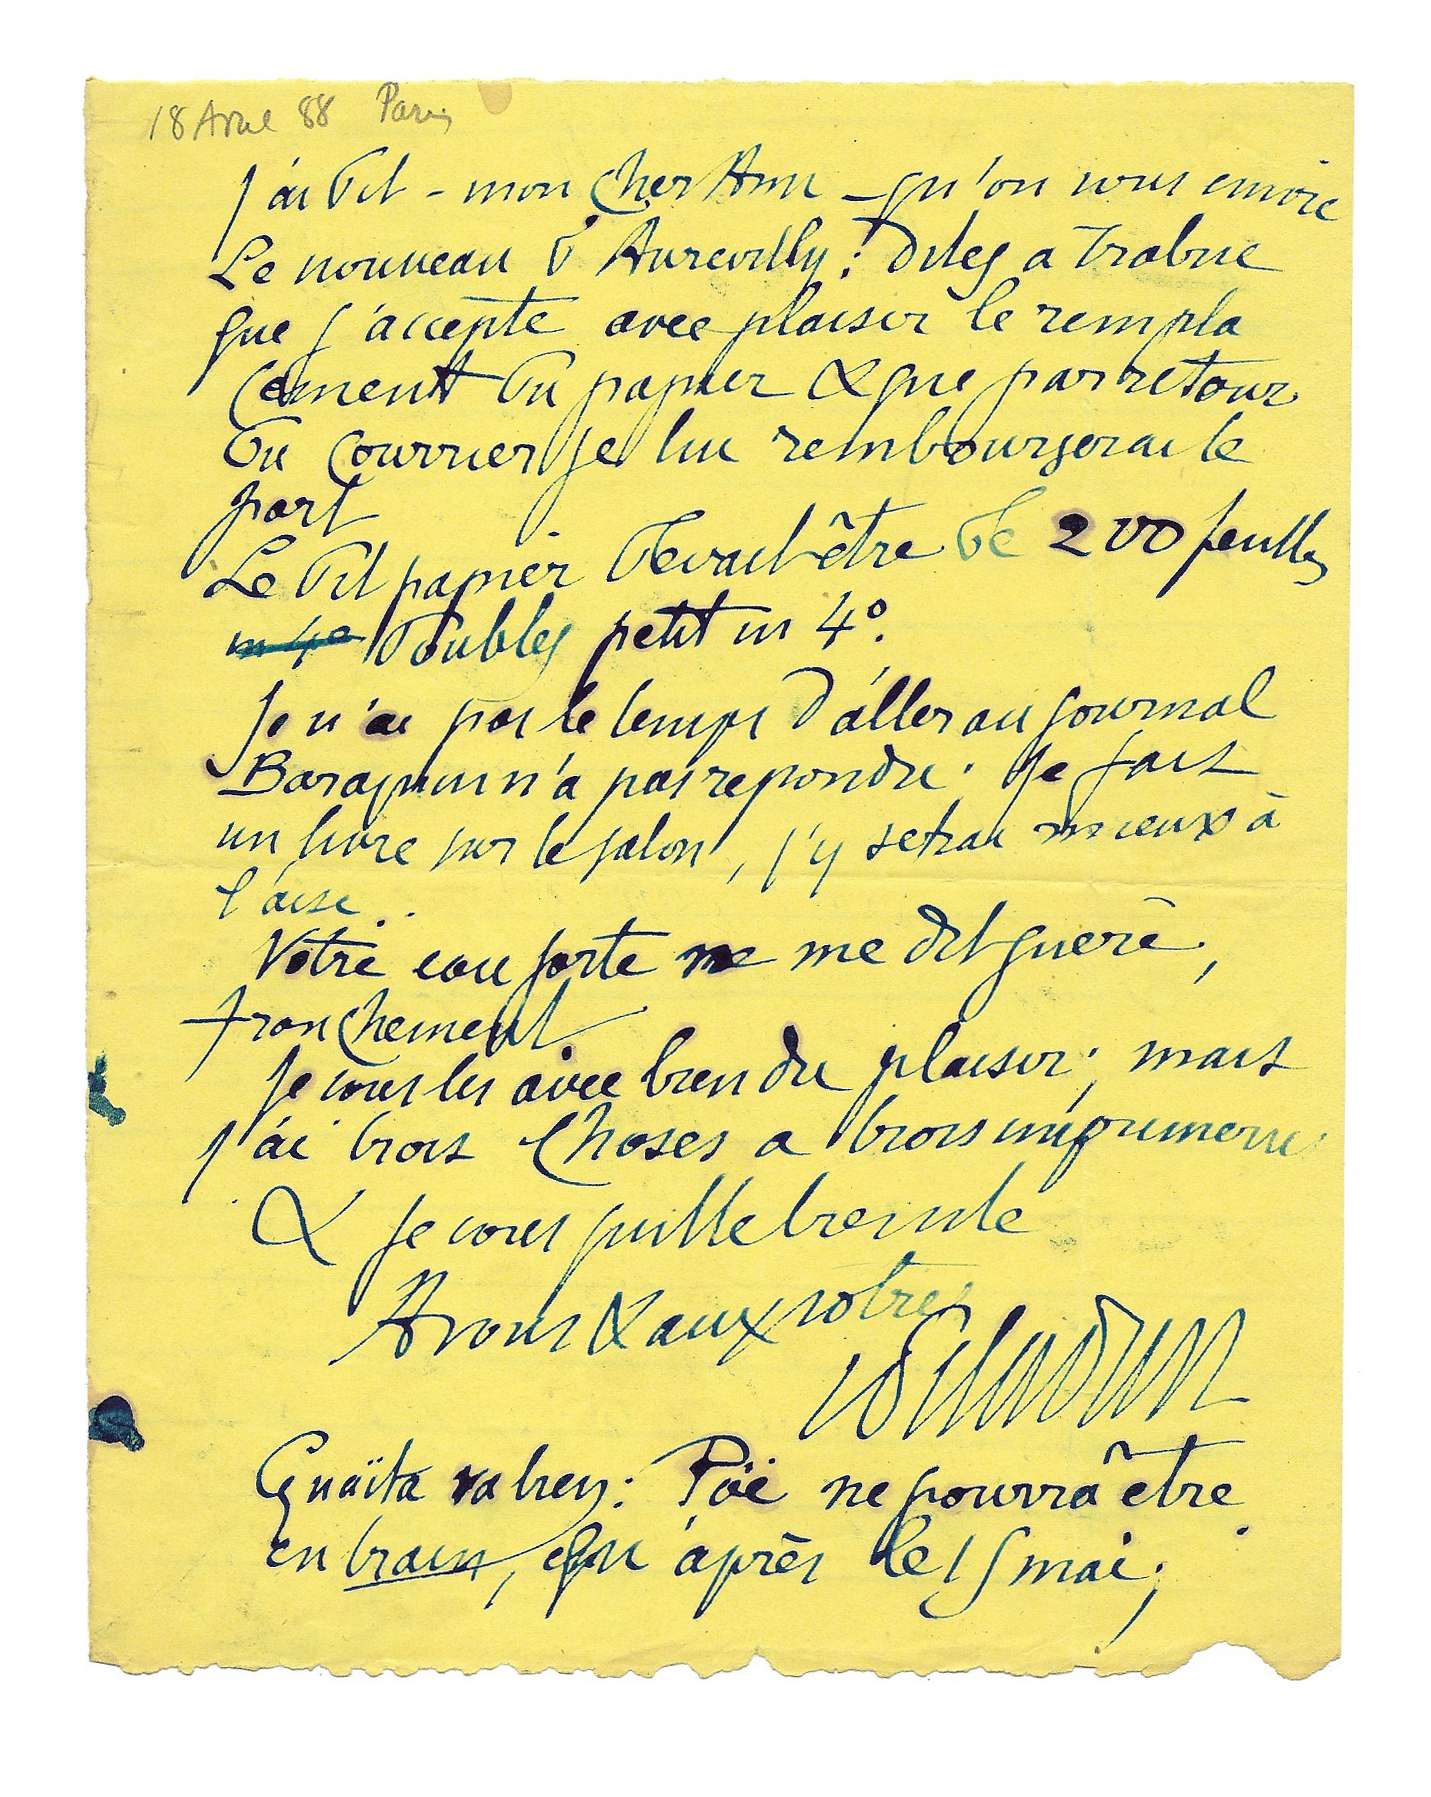 18 Avril 88 Paris
J'ai dit - mon cher Ami - qu'on vous envoie
Le nouveau d'Aurevilly : dites a Trabuc
que j'accepte avec plaisir le rempla
cement du papier & que par retour
du courrier je lui rembourserai le
port
Le dit papier devait être de 200 feuilles
in 4o doubles petit in 4°.
Je n'ai pas le temps d'aller au journal
Baraquin n'a pas repondu. Je fais
un livre sur le salon, j'y serai mieux à
l'aise..
Votre eau forte me dit guère,
franchement
Je vous lis avec bien du plaisir ; mais
j'ai trois choses a trois imprimeries
& je vous quitte
A vous & aux votres
Péladan
Guaïta va bien : Pöe ne pourra être
en train, qu'après le 15 mai ;